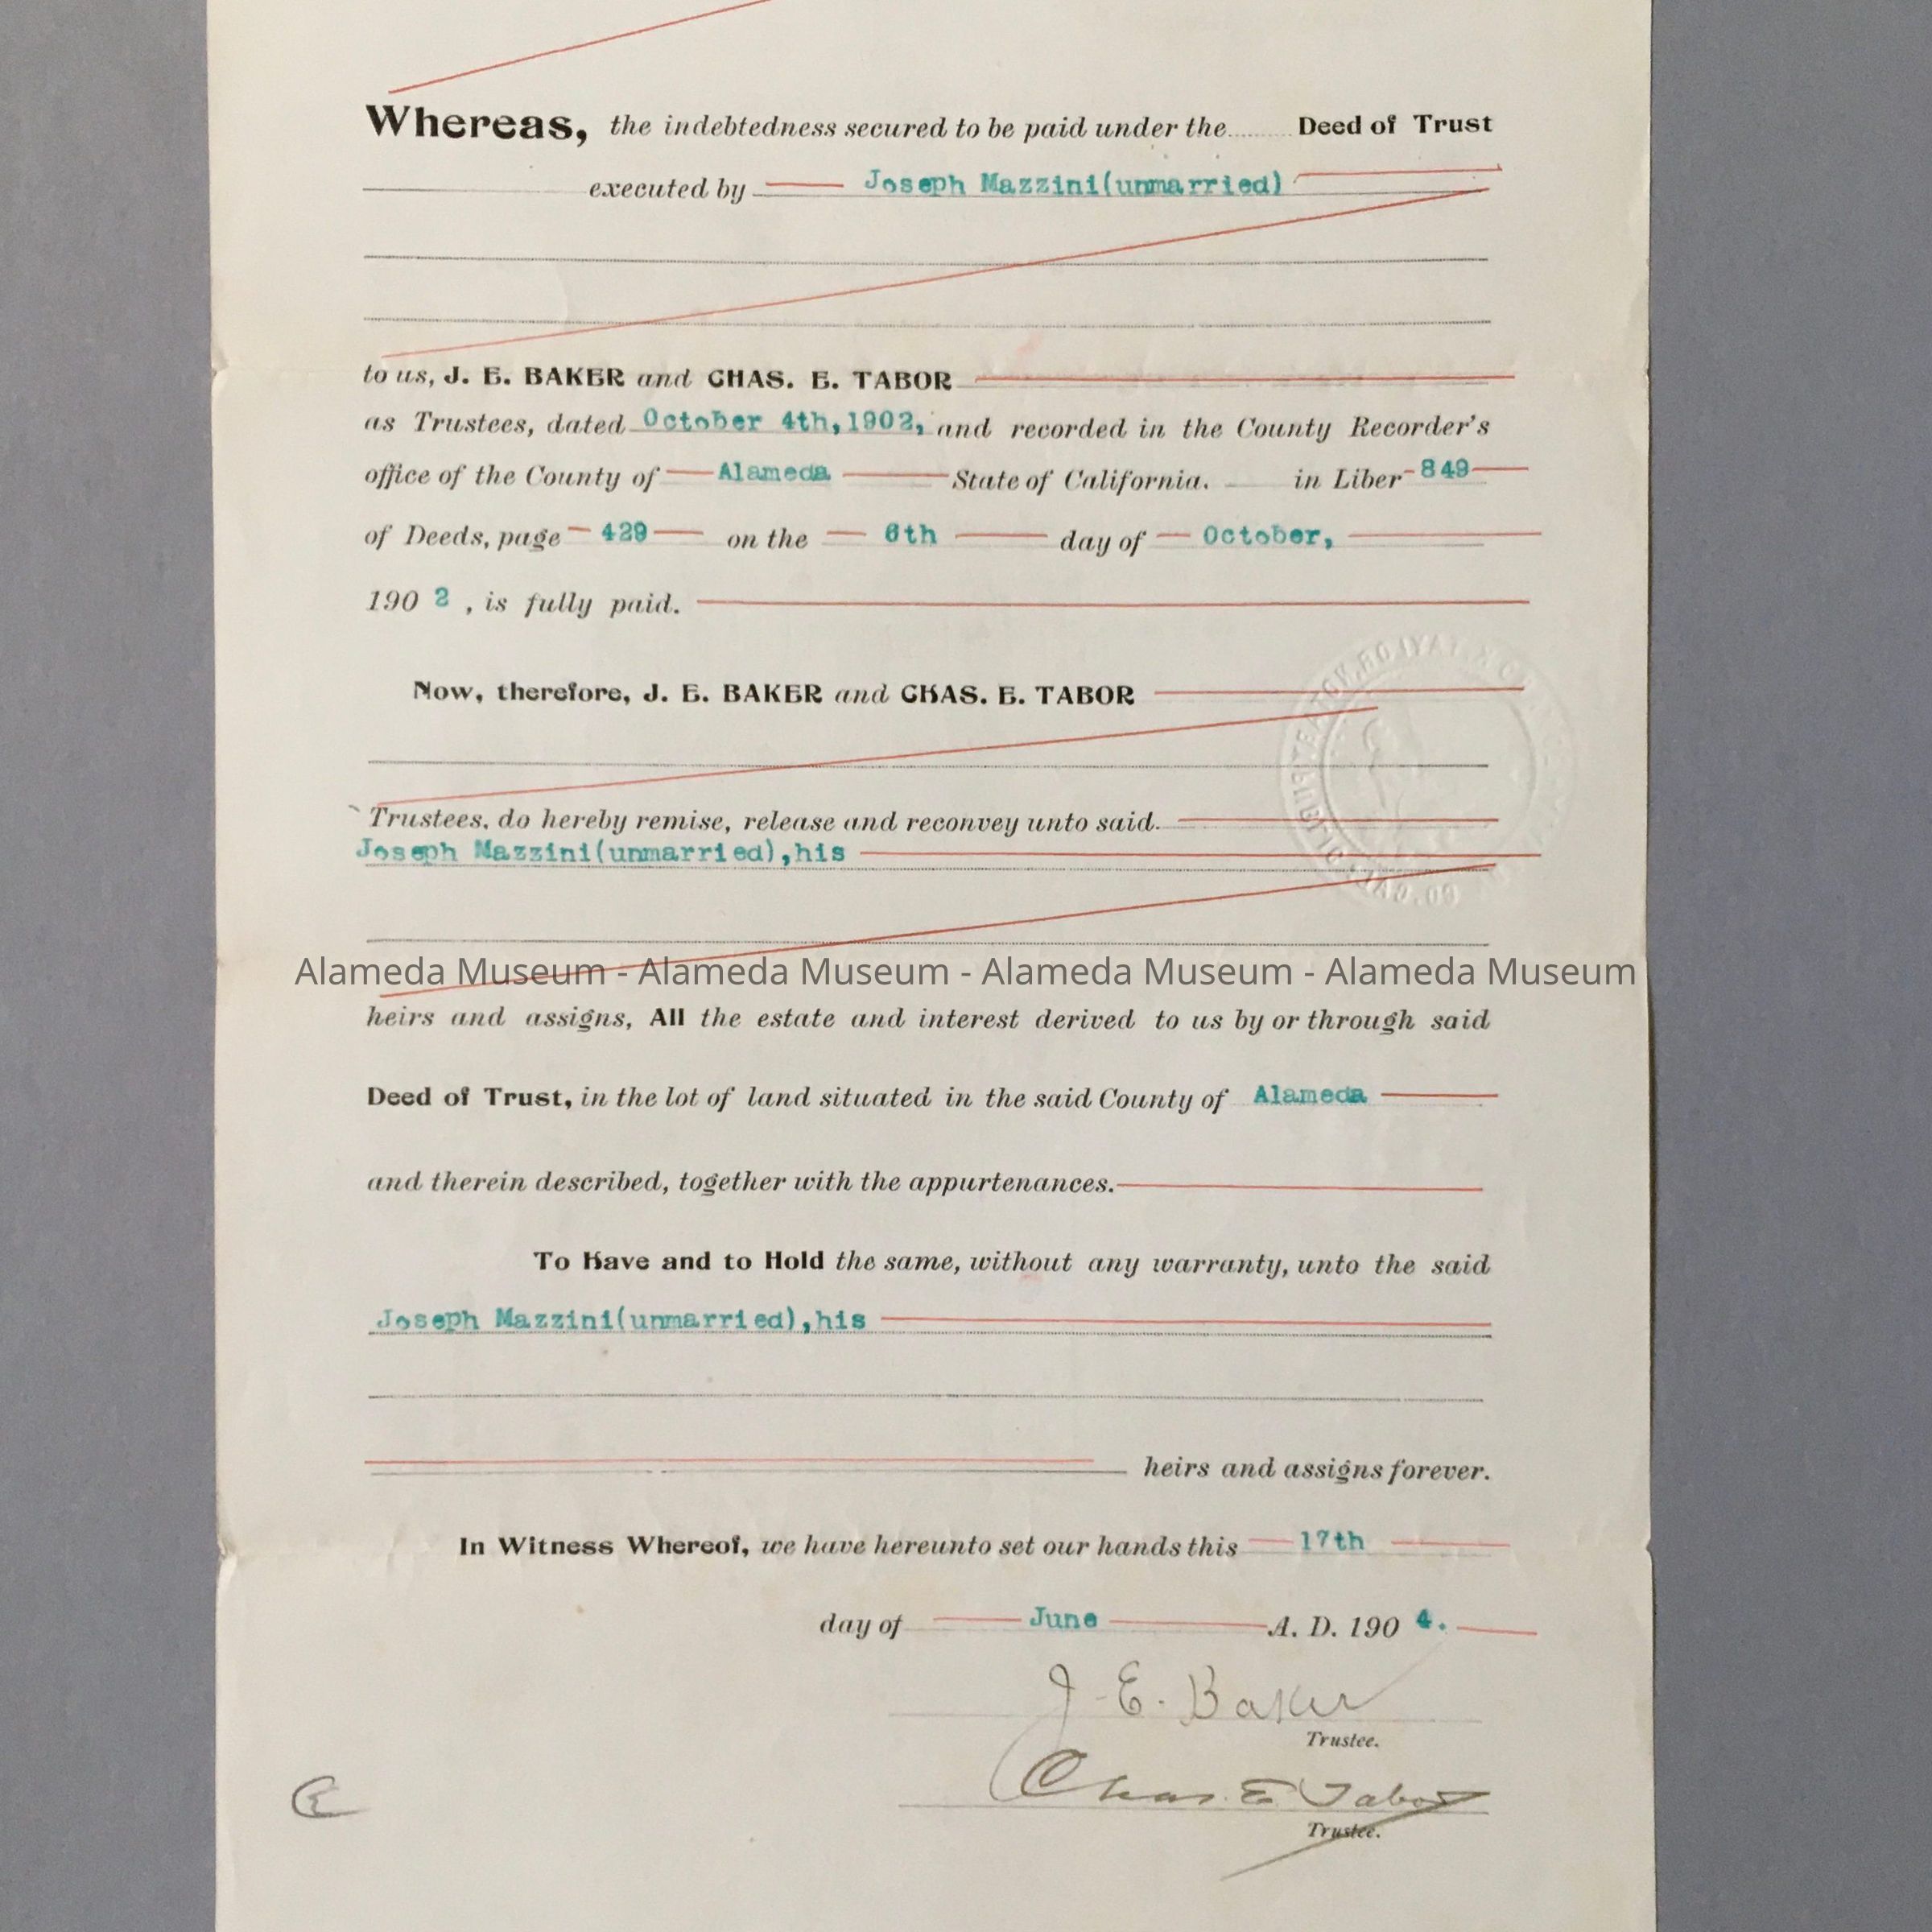 Whereas, the indebtedness secured to be paid under the Deed of Trust
executed by Joseph Mazzini(unmarried)
to us, J. E. BAKER and CHAS. E. TABOR
as Trustees, dated October 4th,1902, and recorded in the County Recorder's
office of the County of Alameda State of California. in Liber 849
of Deeds, page 429 on the 6th day of October,
190 2 , is fully paid.
Now, therefore, J. E. BAKER and CHAS. E. TABOR
Trustees, do hereby remise, release and reconvey unto said
Joseph Mazzini(unmarried),his
Alameda Museum - Alameda Museum - Alameda Museum - Alameda Museum
heirs and assigns, All the estate and interest derived to us by or through said
Deed of Trust, in the lot of land situated in the said County of Alameda
and therein described, together with the appurtenances.
To Have and to Hold the same, without any warranty, unto the said
Joseph Mazzini(unmarried),his
heirs and assigns forever.
In Witness Whereof, we have hereunto set our hands this 17th
day of June A. D. 190 4.
J. E. Baker
Trustee.
Chas. E Tabor
Trustee.